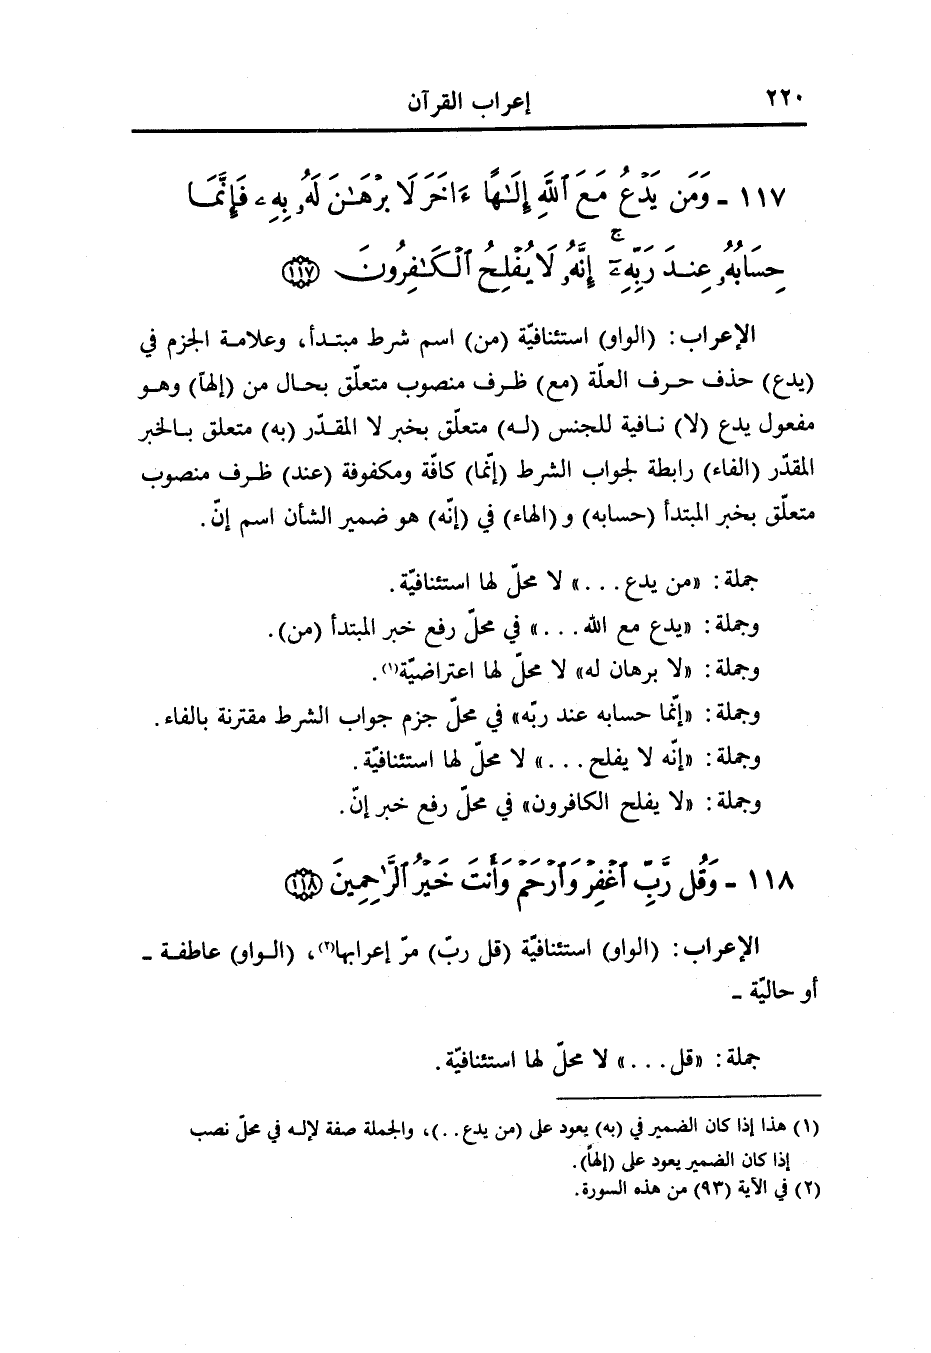 ٢٢٠
إعراب القرآن
١١٧ - وَمَن يَدْعُ مَعَ ٱللَّهِ إِلَٰهًا ءَاخَرَ لَا بُرْهَٰنَ لَهُۥ بِهِۦ فَإِنَّمَا
حِسَابُهُۥ عِندَ رَبِّهِۦٓ ۚ إِنَّهُۥ لَا يُفْلِحُ ٱلْكَٰفِرُونَ ١١٧
الإعراب: (الواو) استئنافيّة (من) اسم شرط مبتدأ، وعلامة الجزم في
(يدع) حذف حرف العلّة (مع) ظرف منصوب متعلّق بحال من (إلهًا) وهو
مفعول يدع (لا) نافية للجنس (له) متعلّق بخبر لا المقدّر (به) متعلق بالخبر
المقدّر (الفاء) رابطة لجواب الشرط (إنّما) كافّة ومكفوفة (عند) ظرف منصوب
متعلّق بخبر المبتدأ (حسابه) و (الهاء) في (إنّه) هو ضمير الشأن اسم إنّ.
جملة: «من يدع...» لا محلّ لها استئنافيّة.
وجملة: «يدع مع الله...» في محلّ رفع خبر المبتدأ (من).
وجملة: «لا برهان له» لا محلّ لها اعتراضيّة(١).
وجملة: «إنّما حسابه عند ربّه» في محلّ جزم جواب الشرط مقترنة بالفاء.
وجملة: «إنّه لا يفلح...» لا محلّ لها استئنافيّة.
وجملة: «لا يفلح الكافرون» في محلّ رفع خبر إنّ.
١١٨ - وَقُل رَّبِّ ٱغْفِرْ وَٱرْحَمْ وَأَنتَ خَيْرُ ٱلرَّٰحِمِينَ ١١٨
الإعراب: (الواو) استئنافيّة (قل ربّ) مرّ إعرابها(٢)، (الواو) عاطفة -
أو حاليّة -
جملة: «قل...» لا محلّ لها استئنافيّة.
(١) هذا إذا كان الضمير في (به) يعود على (من يدع..)، والجملة صفة لإله في محلّ نصب
إذا كان الضمير يعود على (إلهاً).
(٢) في الآية (٩٣) من هذه السورة.